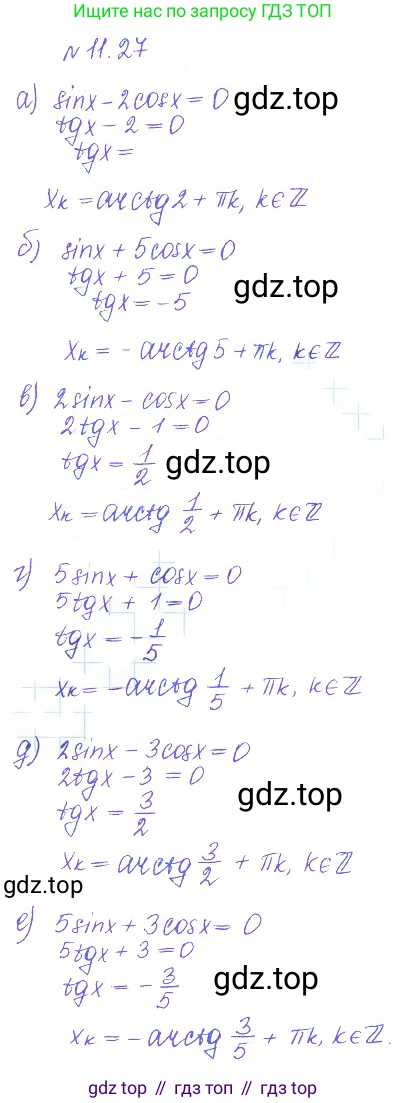 Ищите нас по запросу ГДЗ ТОП
№ 11.27
а) sinx - 2cosx = 0 gdz.top
tgx - 2 = 0
tgx =
xₖ = arctg2 + πk, k∈ℤ
б) sinx + 5cosx = 0
tgx + 5 = 0 gdz.top
tgx = -5
xₖ = - arctg5 + πk, k∈ℤ
в) 2sinx - cosx = 0
2tgx - 1 = 0
tgx = 1/2 gdz.top
xₖ = arctg 1/2 + πk, k∈ℤ
г) 5sinx + cosx = 0
5tgx + 1 = 0
tgx = -1/5
xₖ = -arctg 1/5 + πk, k∈ℤ
д) 2sinx - 3cosx = 0
2tgx - 3 = 0
tgx = 3/2 gdz.top
xₖ = arctg 3/2 + πk, k∈ℤ
gdz.top
е) 5sinx + 3cosx = 0
5tgx + 3 = 0
tgx = - 3/5 gdz.top
xₖ = - arctg 3/5 + πk, k∈ℤ.
gdz топ // гдз топ // gdz top